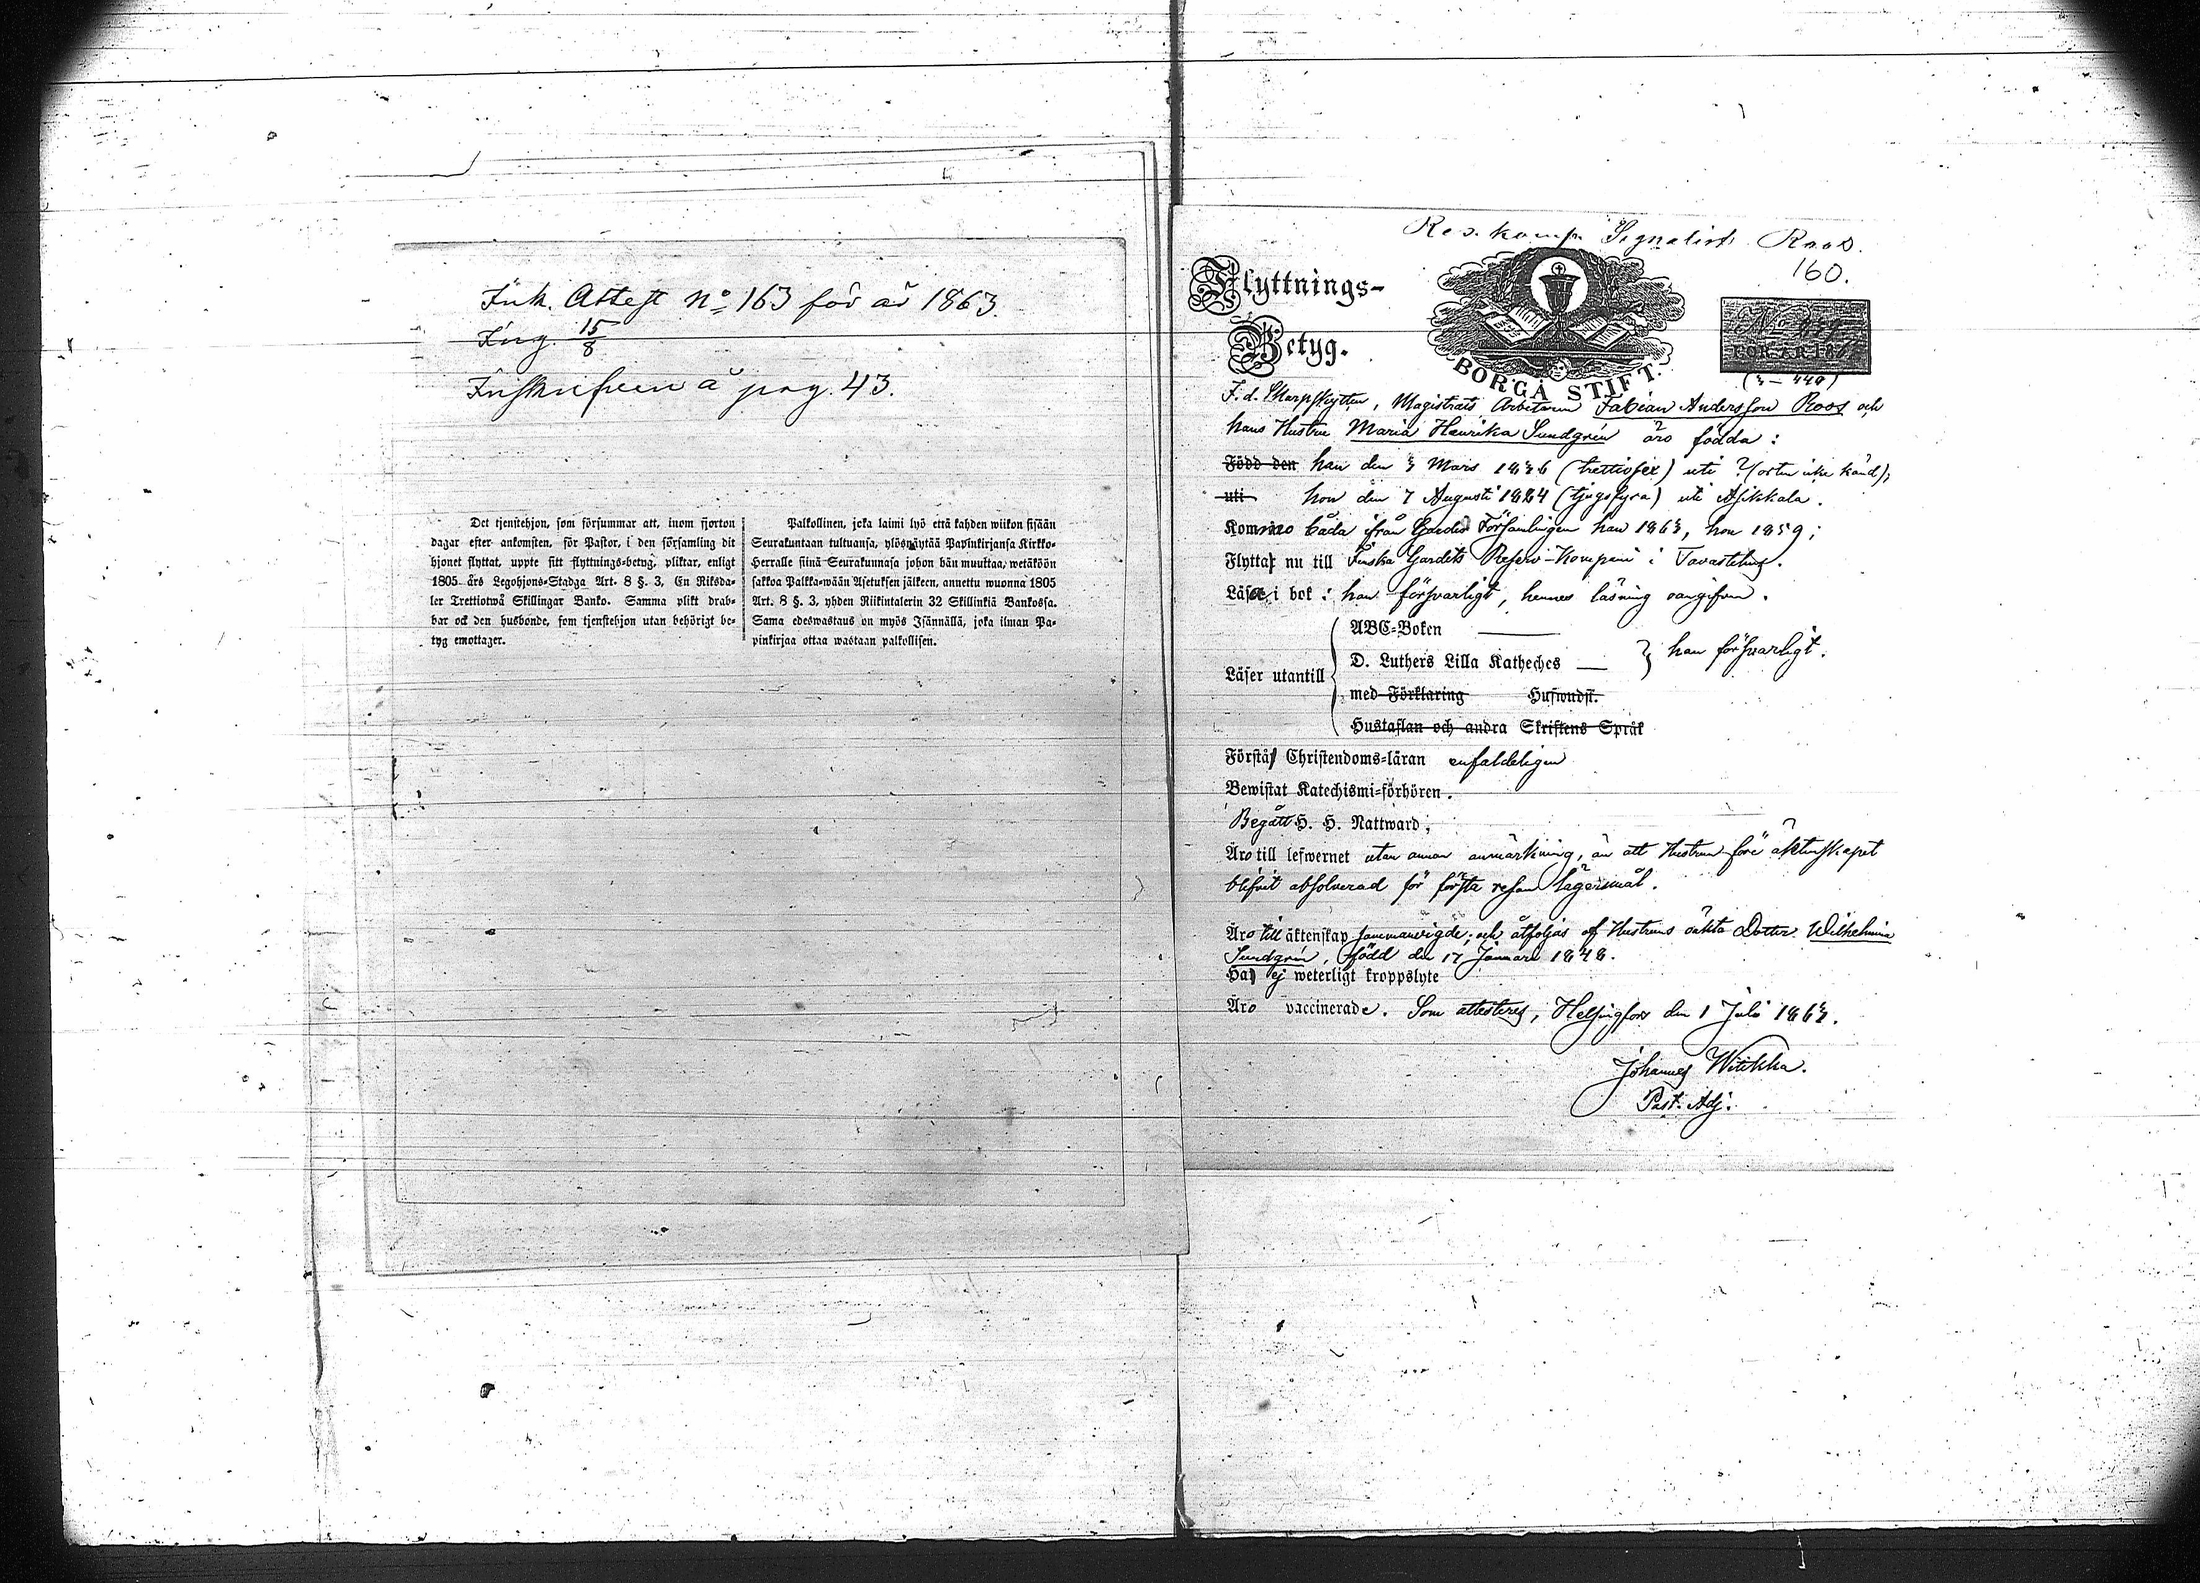 Ink. Attest No 163 för år 1863.
Ing. 15/8
Inskrifven å pag. 43.
Det tjenstehjon, som försummar att, inom fjorton
dagar efter ankomsten, för Pastor, i den församling dit
hjonet flyttat, uppte sitt flyttnings-betyg, pliktar, enligt
1805 års Legohjons-Stadga Art. 8 §. 3, En Riksda-
ler Trettiotwå Skillingar Banko. Samma plikt drab-
bar ock den husbonde, som tjenstehjon utan behörigt be-
tyg emottager.
Palkollinen, joka laimi lyö että kahden wiikon sisään
Seurakuntaan tultuansa, ylösnäytää Papinkirjansa Kirkko-
Herralle siinä Seurakunnasa johon hän muuttaa, wetäköön
sakkoa Palkka-wään Asetuksen jälkeen, annettu wuonna 1805
Art. 8 §. 3, yhden Riikintalerin 32 Skillinkiä Bankossa.
Sama edeswastaus on myös Isännällä, joka ilman Pa-
pinkirjaa ottaa wastaan palkollisen.
Res. komp. Signalist Roos.
160.
Flyttnings-
Betyg.
BORGÅ STIFT.
No
FÖR ÅR 186
F. d. Skarpskytten, Magistrats Arbetaren Fabian Andersson Roos och
hans Hustru Maria Henrika Sundgrén äro födda:
Född den han den 3 Mars 1836 (trettiosex) uti ? (orten icke känd);
uti hon den 7 Augusti 1824 (tjugofyra) uti Asikkala.
Kommo båda ifrån Gardes Församlingen han 1863, hon 1859;
Flytta nu till Finska Gardets Reserv-Kompani i Tavastehus.
Läsa i bok: han försvarligt, hennes läsning oangifven.
Läser utantill
ABC-Boken
D. Luthers Lilla Katheches
med Förklaring Huswudst.
Hustaflan och andra Skriftens Språk
han försvarligt.
Förstå Christendoms-läran enfaldeligen
Bewistat Katechismi-förhören.
Begått H. H. Nattward.
Äro till lefwernet utan annan anmärkning, än att Hustrun före äktenskapet
blifvit absolverad för första resan lägersmål.
Äro till äktenskap sammanvigde; och åtföljas af Hustruns oäkta Dotter Wilhelmina
Sundgrén, född den 17 Januari 1848.
Ha ej weterligt kroppslyte
Äro vaccinerade. Som attesteras, Helsingfors den 1 Juli 1863.
Johannes Witikka.
Past. Adj.